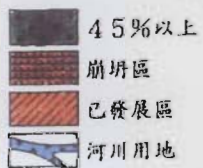 45%以上
崩坍區
已發展區
河川用地